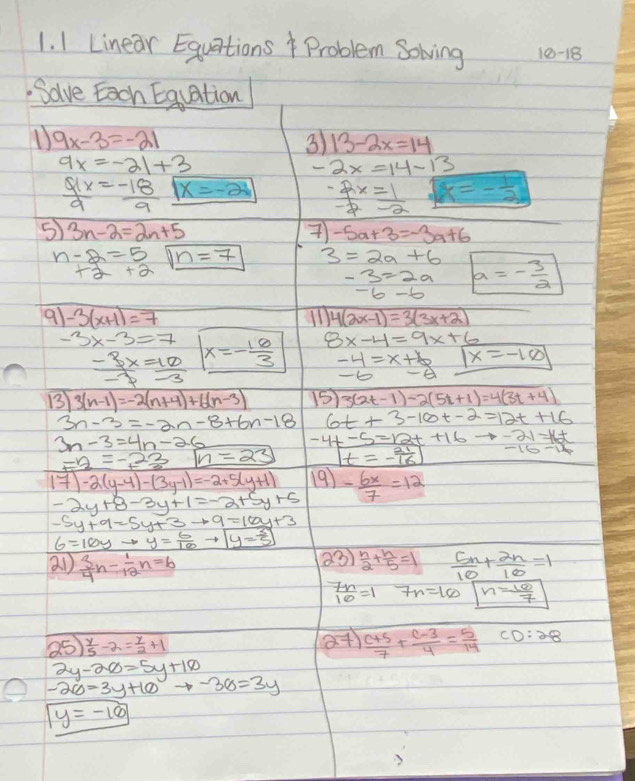 1.1 Linear Equations & Problem Solving 10-18
• Solve Each Equation
1) 9x-3=-21
9x=-21+3
9x/9=-18/9 x=-2
3) 13-2x=14
-2x=14-13
-2x/-2=1/-2 x=-1/2
5) 3n-2=2n+5
n-2=5 n=7
+2 +2
7) -5a+3=-3a+6
3=2a+6
-3=2a a=-3/2
-6 -6
9) -3(x+1)=7
-3x-3=7
-3x/-3=10/-3 x=-10/3
11) 4(2x-1)=3(3x+2)
8x-4=9x+6
-4=x+6 x=-10
-6 -6
13) 3(n-1)=-2(n+4)+6(n-3)
3n-3=-2n-8+6n-18
3n-3=4n-26
n=23
15) 3(2t-1)-2(5t+1)=4(3t+4)
6t+3-10t-2=12t+16
-4t-5=12t+16 → -21=16t
-16 -16
t=-21/16
17) -2(y-4)-(3y-1)=-2+5(y+1)
-2y+8-3y+1=-2+5y+5
-5y+9=5y+3 → 9=10y+3
6=10y → y=6/10 → y=3/5
19) -6x/7=12
21) 3/4n-1/12n=6
23) n/2+n/5=1 5n/10+2n/10=1
7n/10=1 7n=10 n=10/7
25) y/5-2=y/2+1
2y-20=5y+10
-20=3y+10 → -30=3y
y=-10
27) c+5/7+c-3/4=5/14 CD:28